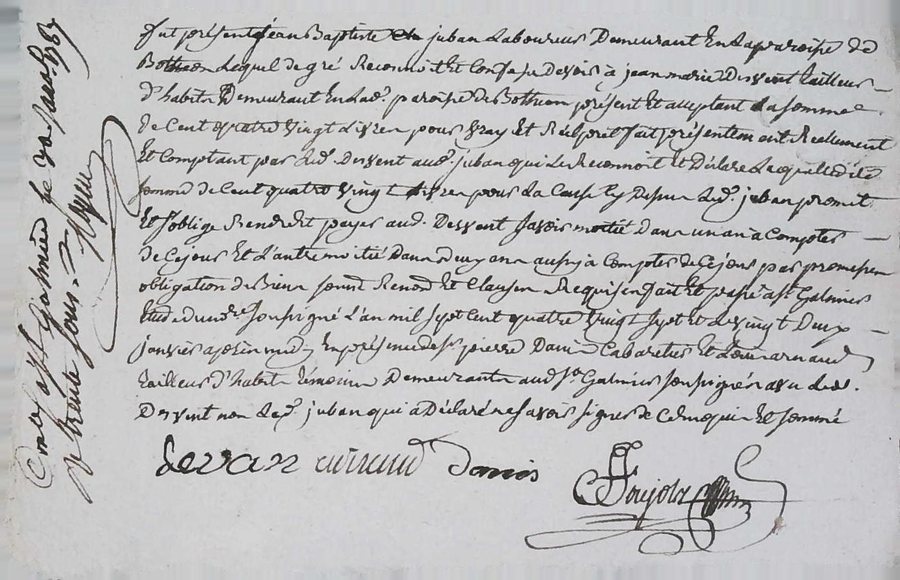 fut présent jean Baptiste juban Laboureur Demeurant En La paroisse de
Bothéon Lequel de gré Reconnoit Et Confesse Devoir à jean marie Desvent tailleur
d'habits Demeurant En Lad. paroisse de Bothéon présent Et acceptant La somme
de Cent quatre vingt Livres pour vray Et Réel prêt fait présentement Réelement
Et Comptant par Led. Desvent aud. juban qui Le Reconnoit Et Déclare Laquelle dite
somme de Cent quatre vingt Livres pour La Cause Cy Dessus Led. juban promet
Et s'oblige Rendre Et payer aud. Desvent sçavoir moitié dans un an à Compter
de Ce jour Et L'autre moitié Dans Deux ans aussy à Compter de Ce jour par promesse
obligation de Biens soumis Renon Et Clauses Requises fait Et passé à st Galmier
Etude du no.re soussigné L'an mil sept Cent quatre vingt sept Et Le vingt Deux
janvier après midy En présence de sr pierre Cabaretier Et arnaud
tailleur d'habits témoins Demeurants aud. st Galmier soussignés avec Led.
Desvent non Led. juban qui à Déclaré ne savoir signer de Ce Enquis Et sommé
devan
Conlé à st Galmier le janv. 1787
trente sous